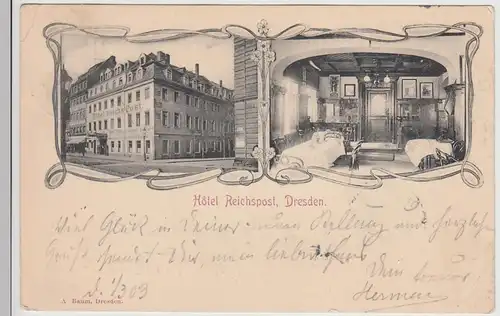 Hôtel Reichspost, Dresden.
Viel Glück in Deiner neuen Stellung und herzliche
Grüße sendet Dir, mein lieber
Dein
d. 1/3 03
Herman
A Baum, Dresden.